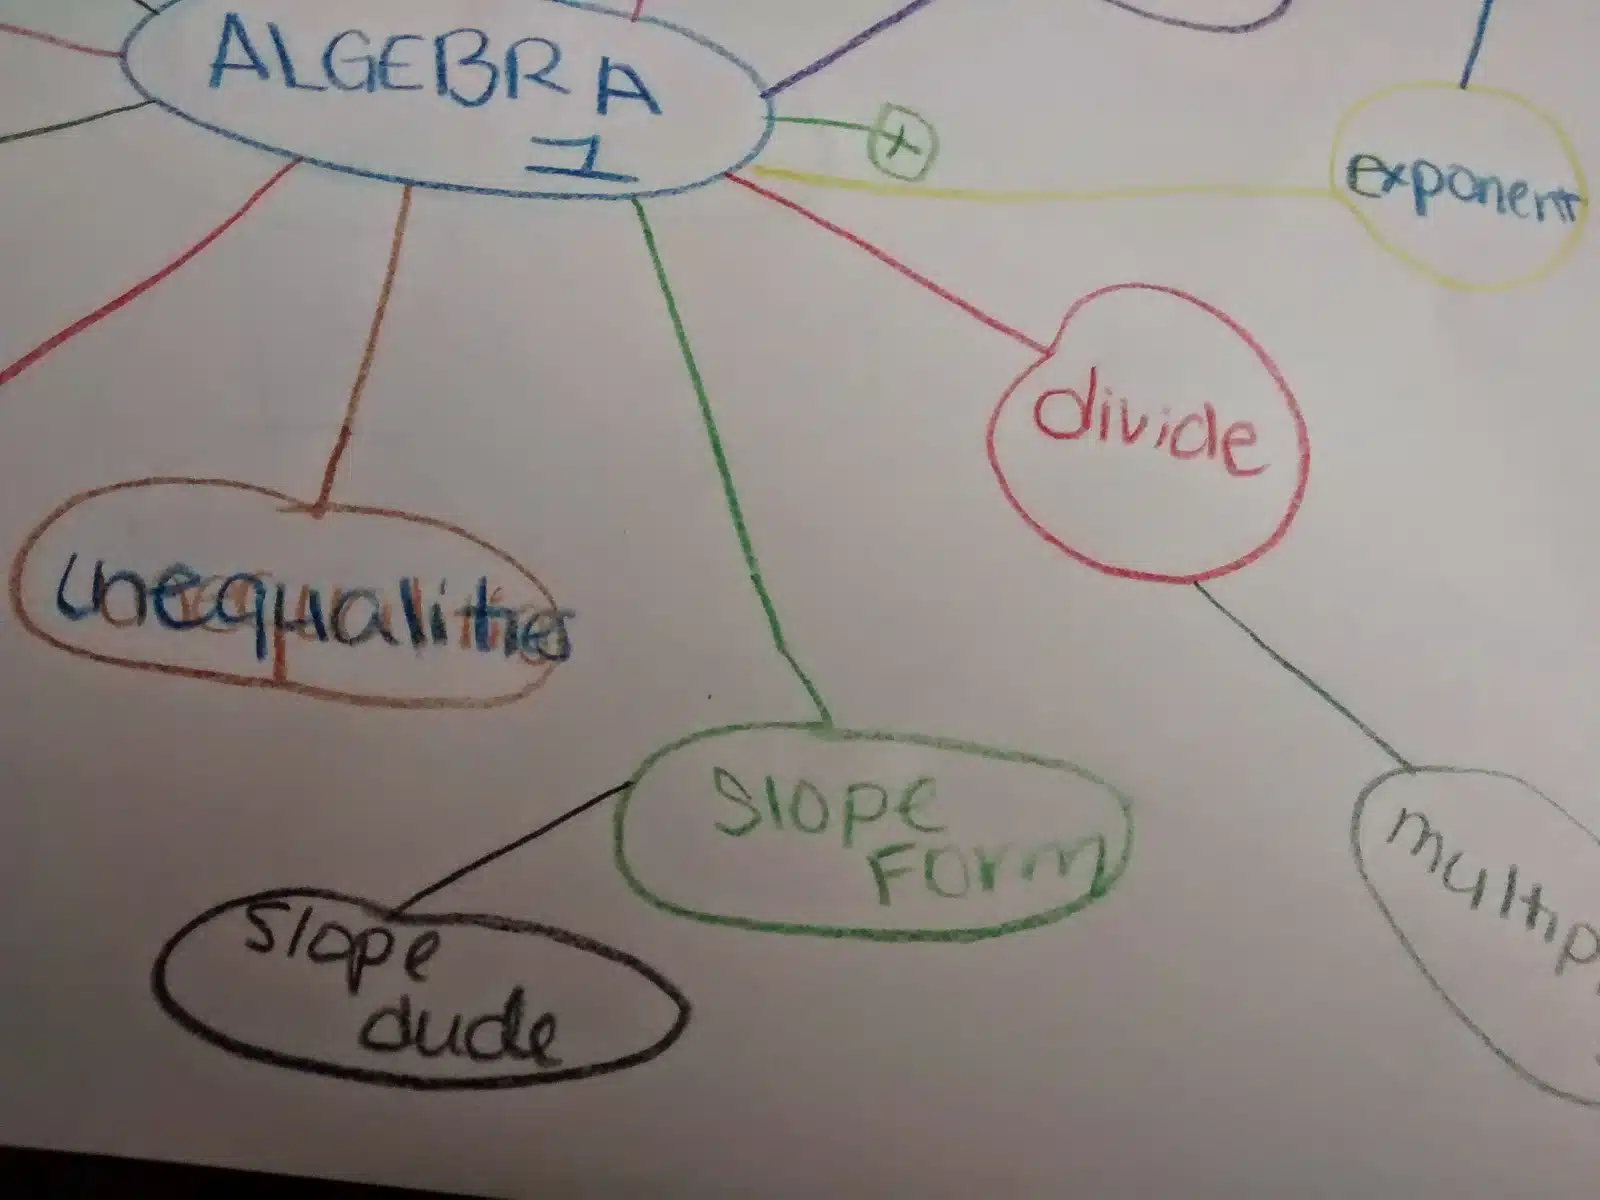 ALGEBRA
1
+
exponent
divide
unequalities
Slope
Form
multip
Slope
dude